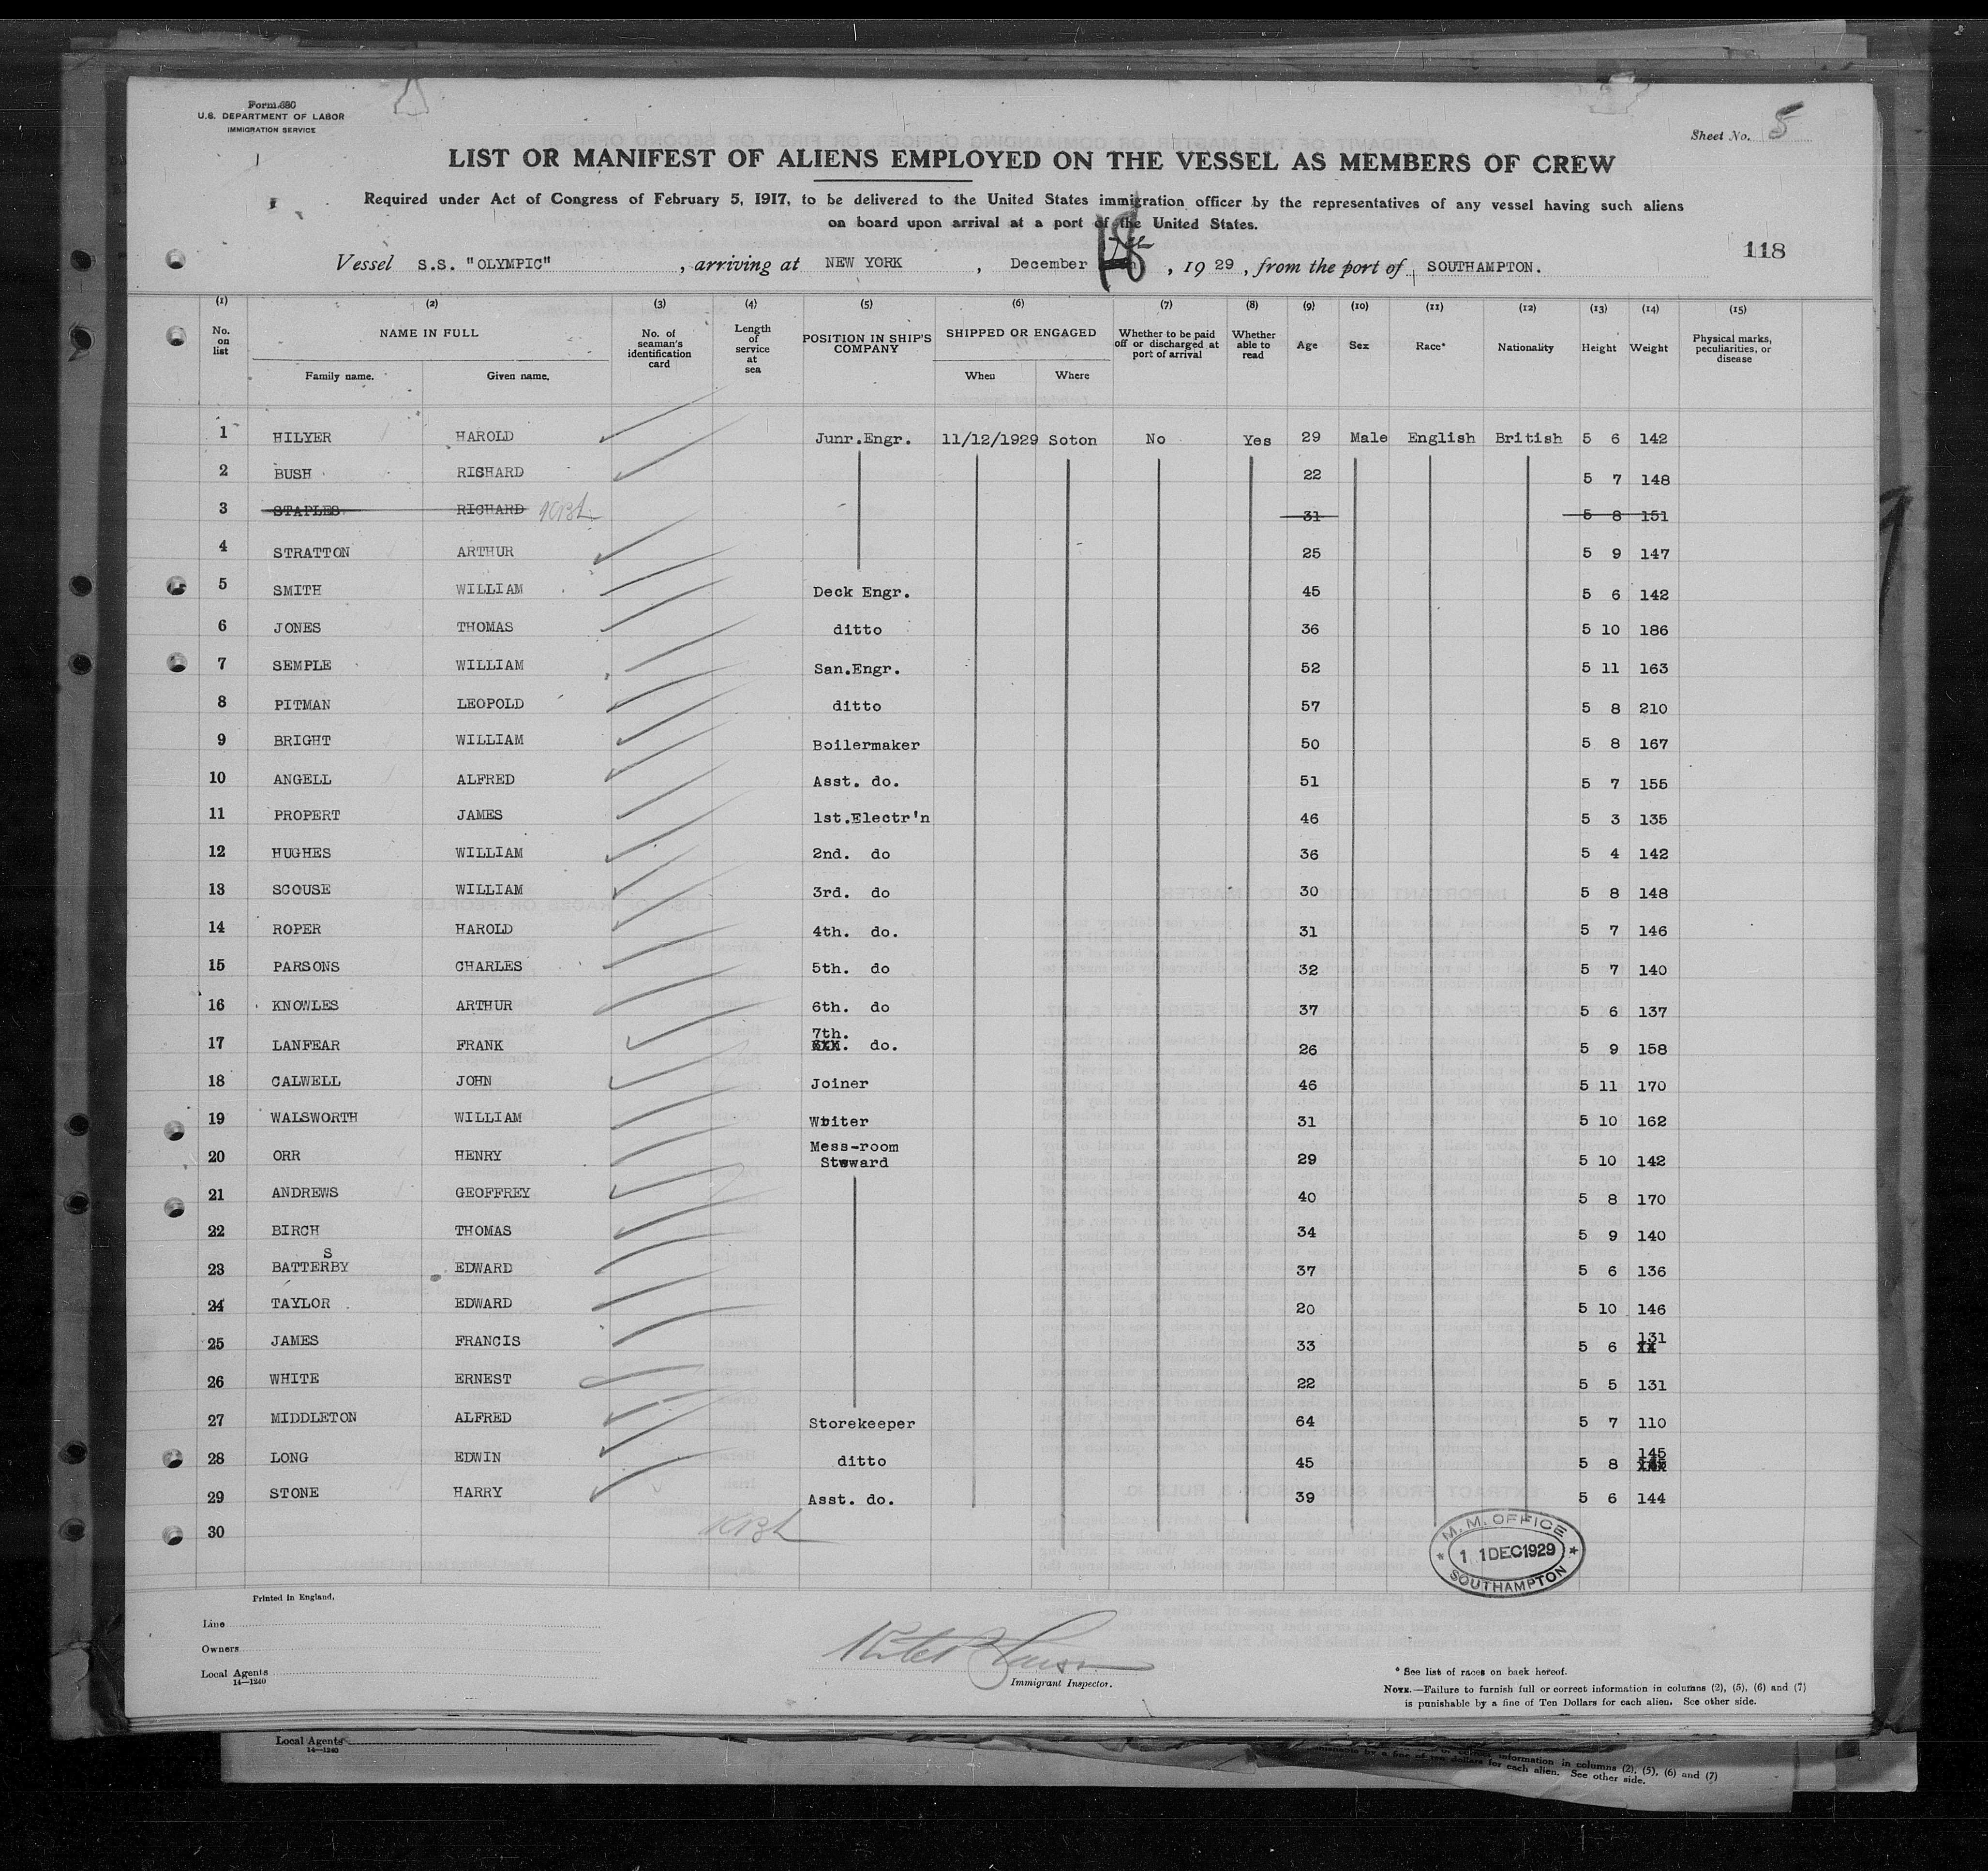 Form 680
U.S. DEPARTMENT OF LABOR
IMMIGRATION SERVICE
Sheet No. 5
LIST OR MANIFEST OF ALIENS EMPLOYED ON THE VESSEL AS MEMBERS OF CREW
Required under Act of Congress of February 5, 1917, to be delivered to the United States immigration officer by the representatives of any vessel having such aliens
on board upon arrival at a port of the United States.
118
Vessel S.S. "OLYMPIC", arriving at NEW YORK, December 18, 1929, from the port of SOUTHAMPTON.
(1) (2) (3) (4) (5) (6) (7) (8) (9) (10) (11) (12) (13) (14) (15)
No. on list NAME IN FULL No. of seaman's identification card Length of service at sea POSITION IN SHIP'S COMPANY SHIPPED OR ENGAGED Whether to be paid off or discharged at port of arrival Whether able to read Age Sex Race* Nationality Height Weight Physical marks, peculiarities, or disease
Family name. Given name. When Where
1 HILYER HAROLD Junr.Engr. 11/12/1929 Soton No Yes 29 Male English British 5 6 142
2 BUSH RICHARD 22 5 7 148
3 STAPLES RICHARD 31 5 8 151
4 STRATTON ARTHUR 25 5 9 147
5 SMITH WILLIAM Deck Engr. 45 5 6 142
6 JONES THOMAS ditto 36 5 10 186
7 SEMPLE WILLIAM San.Engr. 52 5 11 163
8 PITMAN LEOPOLD ditto 57 5 8 210
9 BRIGHT WILLIAM Boilermaker 50 5 8 167
10 ANGELL ALFRED Asst. do. 51 5 7 155
11 PROPERT JAMES 1st.Electr'n 46 5 3 135
12 HUGHES WILLIAM 2nd. do 36 5 4 142
13 SCOUSE WILLIAM 3rd. do 30 5 8 148
14 ROPER HAROLD 4th. do. 31 5 7 146
15 PARSONS CHARLES 5th. do 32 5 7 140
16 KNOWLES ARTHUR 6th. do 37 5 6 137
17 LANFEAR FRANK 7th. do. 26 5 9 158
18 CALWELL JOHN Joiner 46 5 11 170
19 WALSWORTH WILLIAM Writer 31 5 10 162
20 ORR HENRY Mess-room Steward 29 5 10 142
21 ANDREWS GEOFFREY 40 5 8 170
22 BIRCH THOMAS 34 5 9 140
S
23 BATTERBY EDWARD 37 5 6 136
24 TAYLOR EDWARD 20 5 10 146
25 JAMES FRANCIS 33 5 6 131
26 WHITE ERNEST 22 5 5 131
27 MIDDLETON ALFRED Storekeeper 64 5 7 110
28 LONG EDWIN ditto 45 5 8 145
29 STONE HARRY Asst. do. 39 5 6 144
30
M.M. OFFICE
11 DEC 1929
SOUTHAMPTON
Printed in England.
Line
Owners
Local Agents
14—1240
Immigrant Inspector.
* See list of races on back hereof.
NOTE.—Failure to furnish full or correct information in columns (2), (5), (6) and (7)
is punishable by a fine of Ten Dollars for each alien. See other side.
Local Agents
14—1240
information in columns (2), (5), (6) and (7)
by a fine of ten dollars for each alien. See other side.